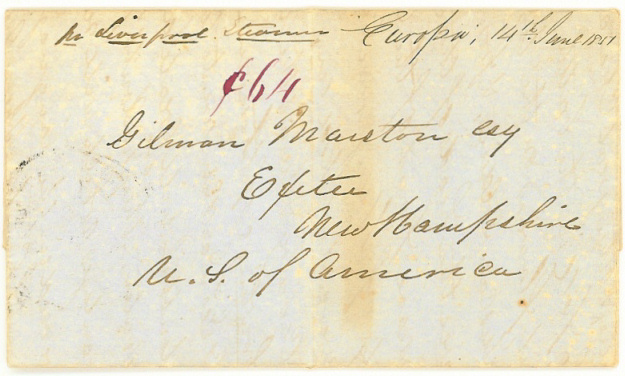 pr Liverpool Steamer Europa, 14th June 1851
¢64
Gilman Marston esq
Exeter
New Hampshire
U. S. of America